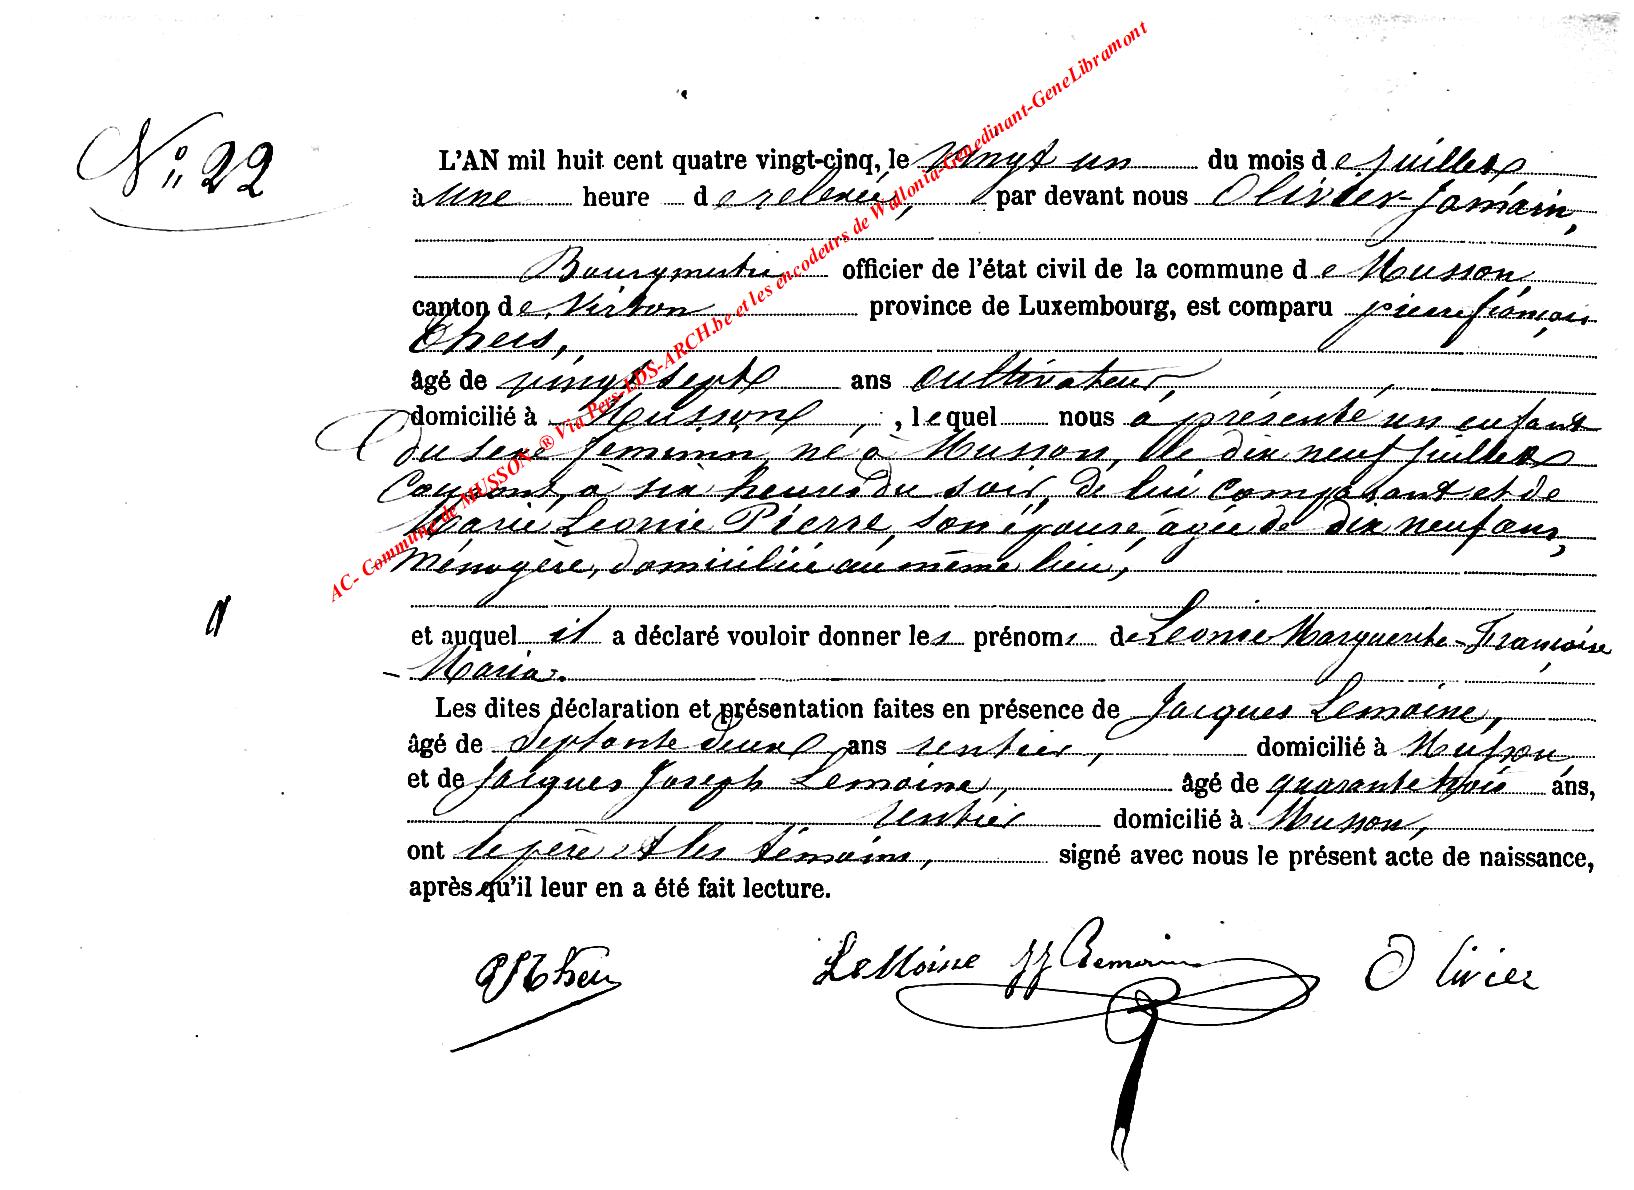 N° 22
L'AN mil huit cent quatre vingt-cinq, le vingt un du mois de juillet
à une heure de relevée, par devant nous Olivier Jamain,
Bourgmestre officier de l'état civil de la commune de Musson
canton de Virton province de Luxembourg, est comparu pierre françois
Theis,
âgé de vingt sept ans cultivateur,
domicilié à Musson, lequel nous a présenté un enfant
du sexe féminin, né à Musson, le dix neuf juillet
Courant, à six heures du soir, de lui comparant et de
Marie Leonie Pierre, son épouse, âgée de dix neuf ans,
Ménagère, domiciliée au même lieu,
et auquel il a déclaré vouloir donner les prénoms de Leonie Marguerite-Françoise
Maria.
Les dites déclaration et présentation faites en présence de Jacques Lemoine,
âgé de Septante deux ans rentier, domicilié à Musson
et de Jacques Joseph Lemoine, âgé de quarante trois ans,
rentier domicilié à Musson,
ont le père et les témoins, signé avec nous le présent acte de naissance,
après qu'il leur en a été fait lecture.
LeMoine JJ Lemoine Olivier
AC- Commune de MUSSON ® Via Pers-LDS-ARCH.be et les encodeurs de Wallonia-Genedinant-GeneLibramont